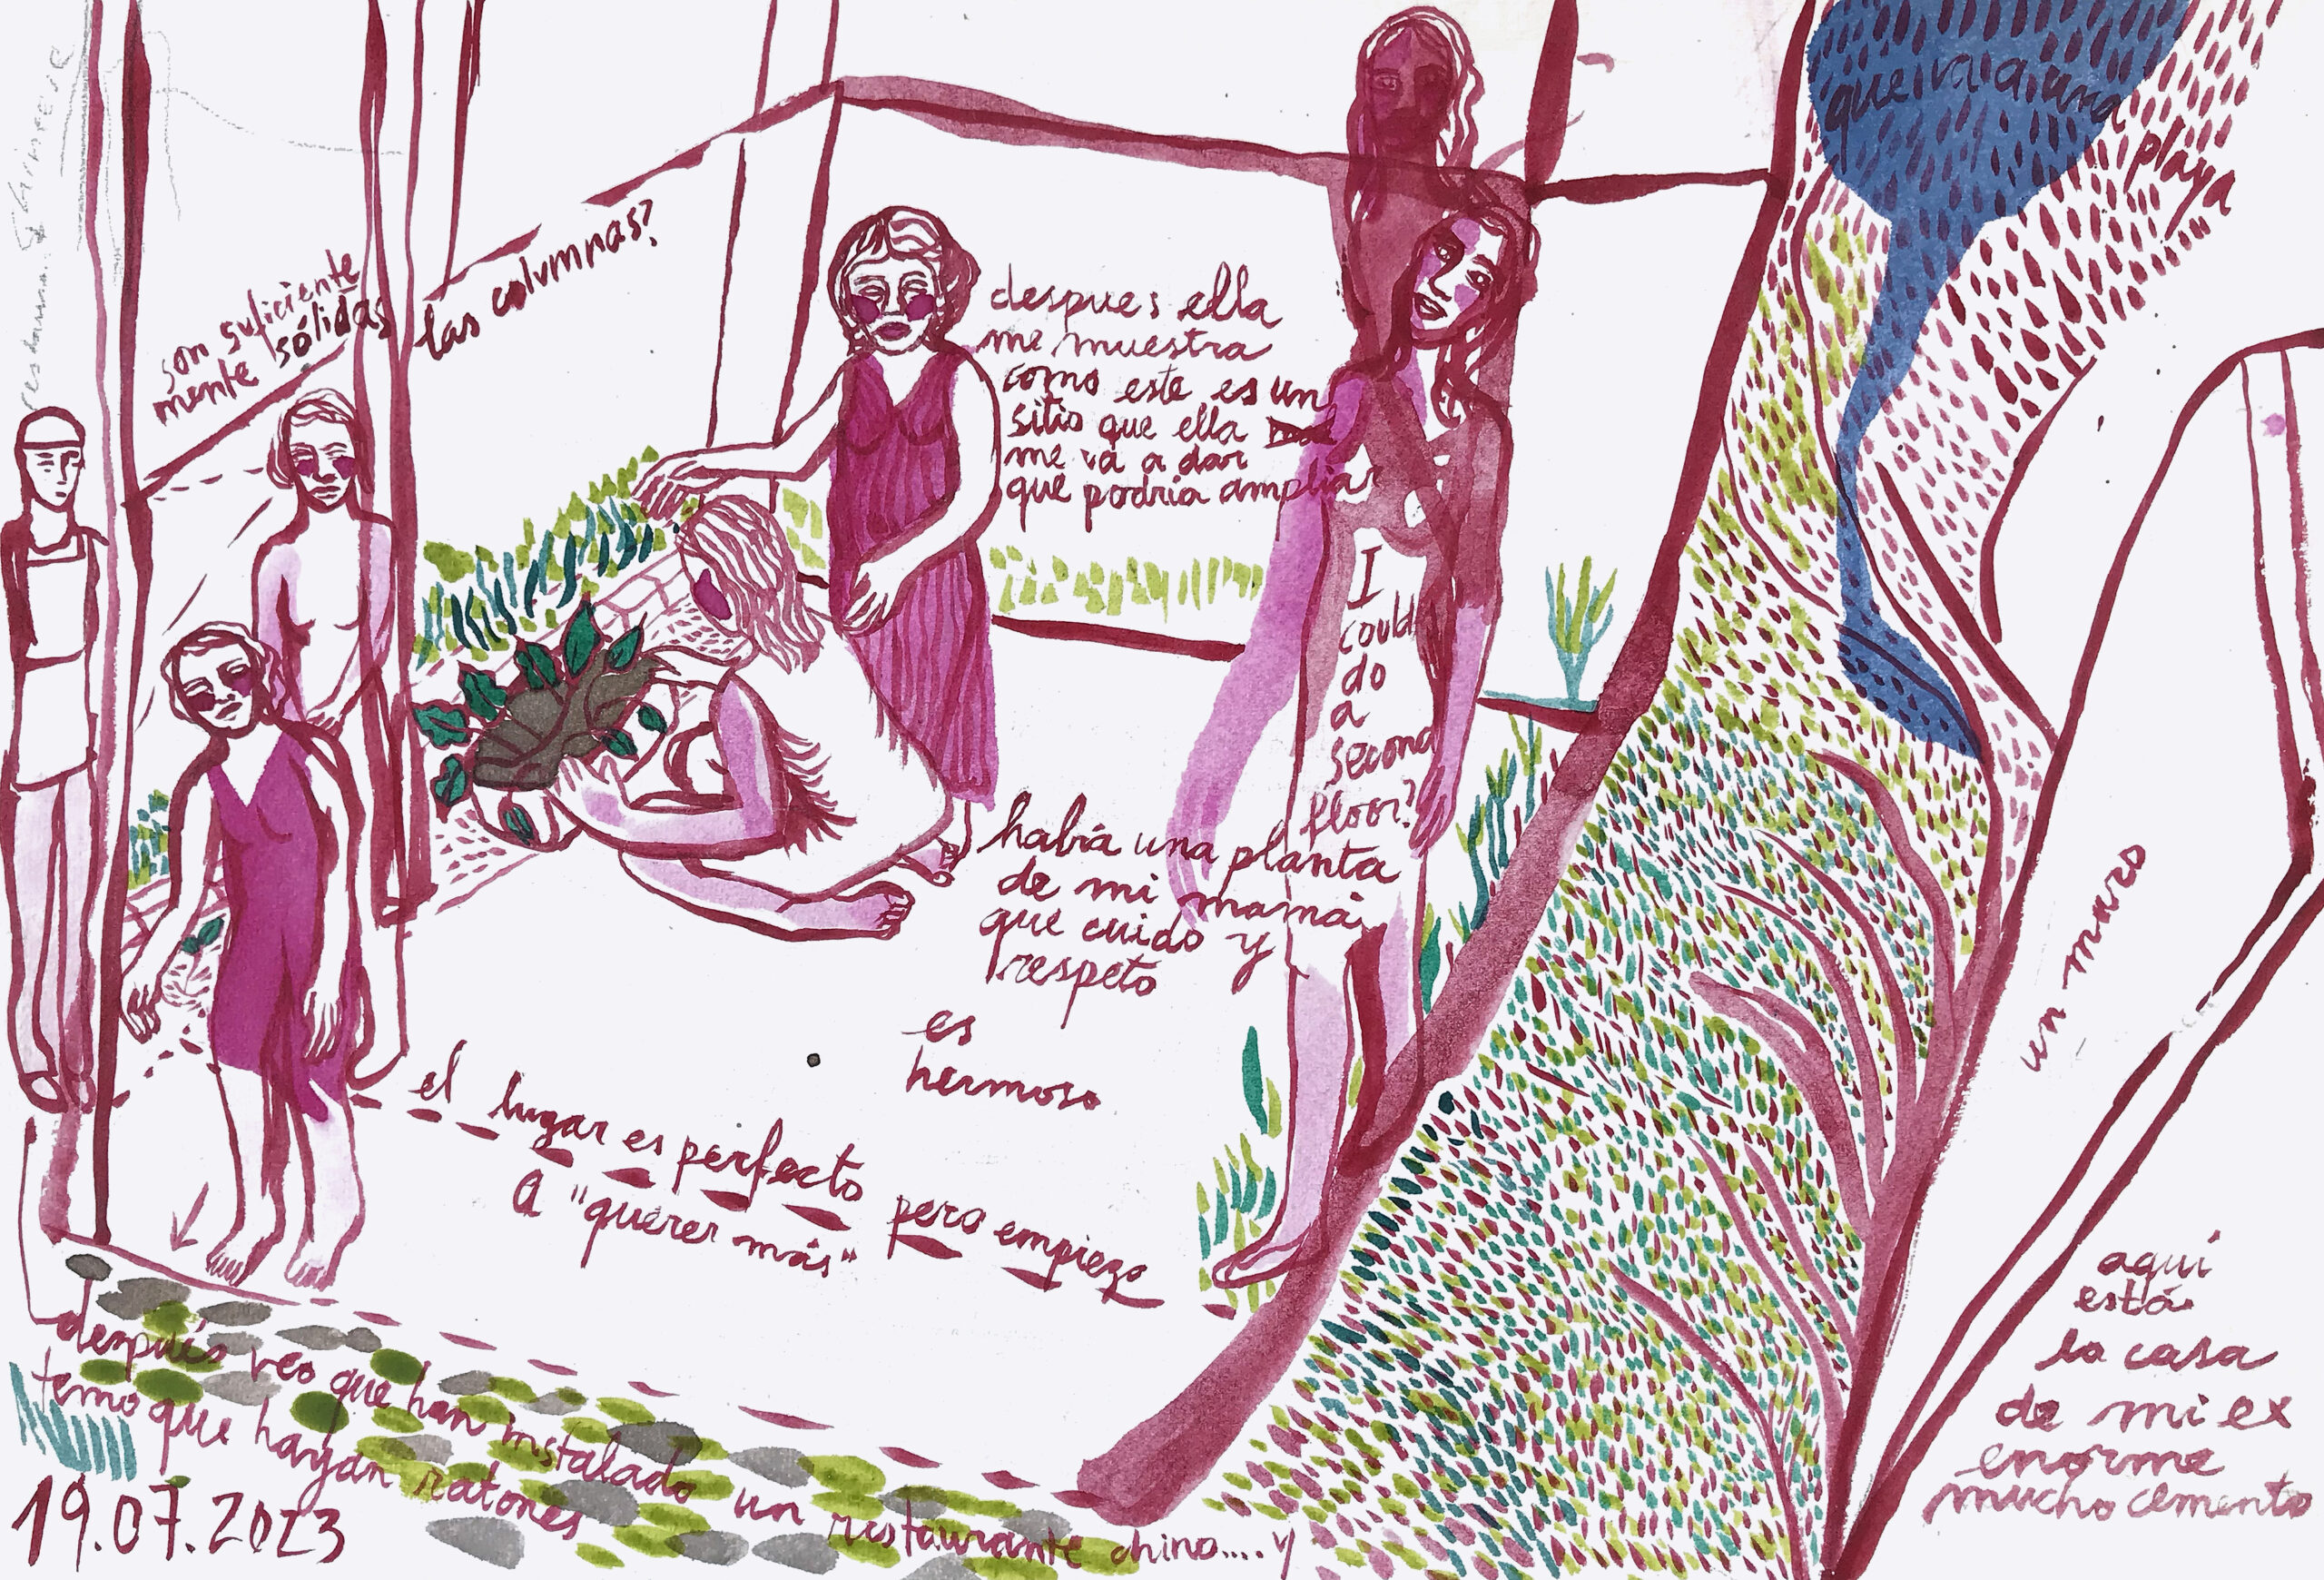 son suficiente
mente sólidas
las columnas?
despues ella
me muestra
como este es un
sitio que ella
me va a dar
que podría ampliar
I
could
do
a
second
floor?
había una planta
de mi mamá
que cuido y
respeto
es
hermoso
el lugar es perfecto pero empieza
A "querer más"
después veo que han instalado un restaurante chino.... y
temo que hayan ratones
19.07.2023
que va a una
playa
un muro
aquí
está
la casa
de mi ex
enorme
mucho cemento